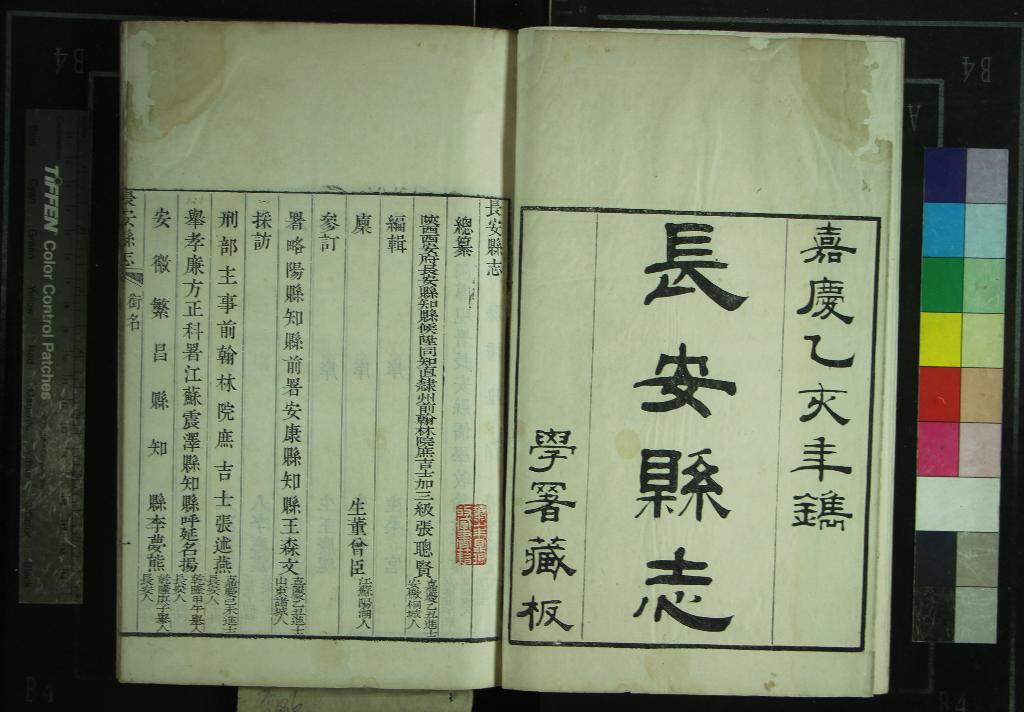 嘉慶乙亥年鐫
長安縣志
學署藏板
長安縣志
總纂
陝西西安府長安縣知縣候陞同知直隸州前翰林院庶吉士加三級張聰賢 嘉慶乙丑進士 安徽桐城人
編輯
廩生董曾臣 江蘇陽湖人
參訂
署略陽縣知縣前署安康縣知縣王森文 嘉慶乙丑進士 山東諸城人
採訪
刑部主事前翰林院庶吉士張述燕 嘉慶己未進士 長安人
舉孝廉方正科署江蘇震澤縣知縣呼延名揚 乾隆甲午舉人 長安人
安徽繁昌縣知縣李夢熊 乾隆庚子舉人 長安人
長安縣志
銜名
一
TIFFEN Color Control Patches
B4
B4
A
B4
B4